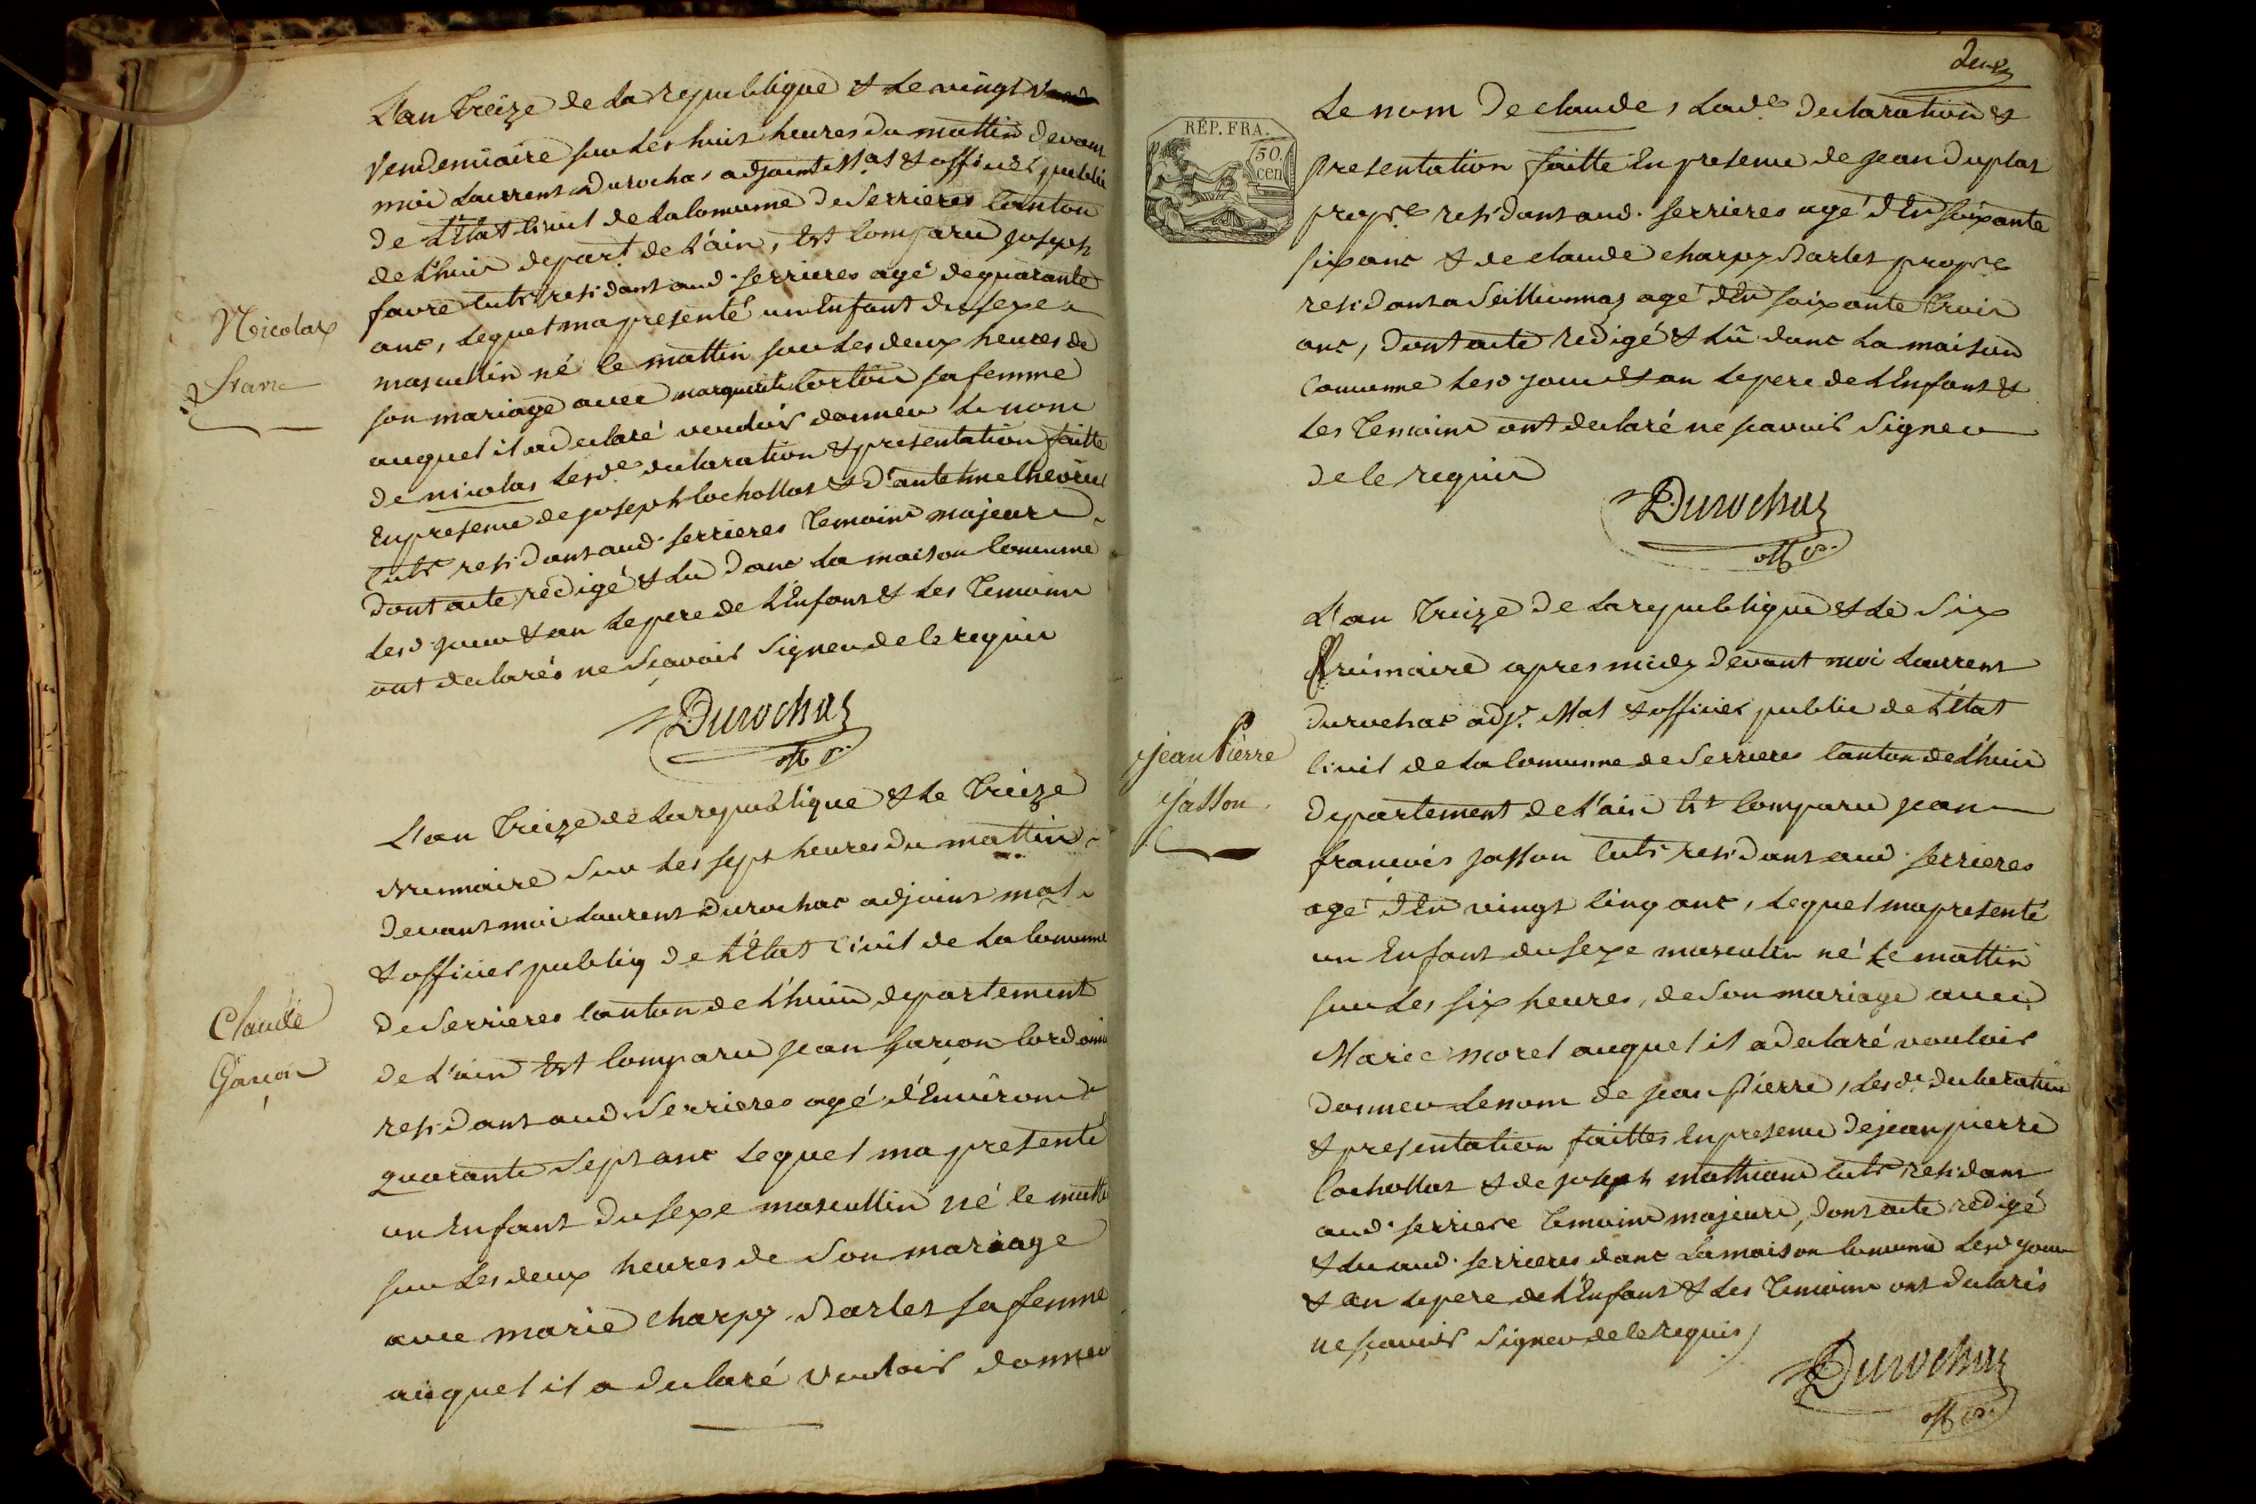 L'an treize de la republique & le vingt
Vendemiaire sur les huit heures du mattin devant
moi Laurrent Durochat adjoint Mal & officier public
de L'Etat Civil de la Comunne de Serrieres Canton
de L'huis depart de L'ain, Est Comparu joseph
favre Cultr residant aud. serrieres agé de quarante
Nicolas
favre
ans, lequel ma presenté un Enfant du sexe
masculin né le mattin sur les deux heures de
son mariage avec marguerite sa femme
auquel il a declaré vouloir donner le nom
de nicolas Lesde declaration & presentation faitte
En presence de joseph Cochollat & d'
Cultr residant aud. serrieres temoins majeurs
dont acte redigé & lu dans la maison Comunne
lesd. jour & an le pere de L'Enfant & les temoins
ont declarés ne sçavoir signer de ce requis
Durochat
off. p.
L'an treize de la republique & le treize
Brumaire sur les sept heures du mattin
devant moi Laurent Durochat adjoint mal
& officier publiq de L'Etat Civil de la Comunne
de Serrieres Canton de L'huis departement
Claude
Garçon
de L'ain Est Comparu jean Garçon Cordonnie
residant aud. Serrieres agé d'Environ
quarante sept ans lequel ma presenté
un Enfant du sexe mascullin né le matti
sur les deux heures de son mariage
avec marie Charpy Barlet sa femme
auquel il a declaré vouloir donner
deux
RÉP. FRA.
50
cen
Le nom de claude, Lade declaration &
presentation faitte En presence de jean Duplat
propre residant aud. serrieres agé d'En soixante
six ans & de claude charpy Barlet propre
residant a Seillionnaz agé d'En soixante trois
ans, dont acte redigé & lû dans la maison
Comunne lesd jour & an le pere de L'Enfant &
les temoins ont declaré ne scavoir signer
de ce requis
Durochat
off. p.
L'an treize de la republique & le six
frimaire apres midy devant moi Laurrent
durochat adjt Mal & officier public de L'Etat
Civil de la Comunne de Serrieres Canton de L'huis
jean Pierre
jasson
departement de L'ain Est Comparu jean
francois jasson Cultr residant aud. serrieres
agé d'En vingt cinq ans, lequel ma presenté
un Enfant du sexe masculin né le mattin
sur les six heures, de son mariage avec
Marie morel auquel il a declaré vouloir
donner le nom de jean Pierre, Lesde declaration
& presentation faittes En presence de jean pierre
Cochollat & de joseph mathieu Cultr residant
aud. serriere temoins majeurs, dont acte redigé
& lu aud. serrieres dans la maison Comunne lesd. jour
& an le pere de L'Enfant & les temoins ont declarés
ne sçavoir signer de ce requis
Durochat
off. p.